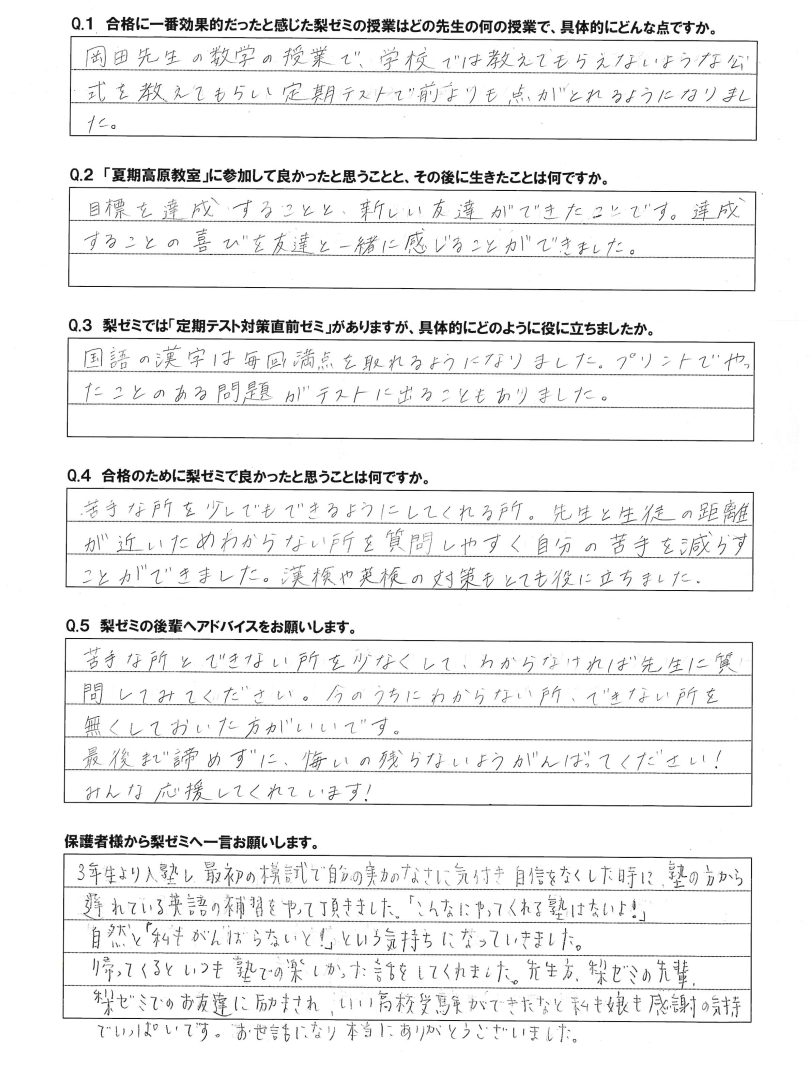 Q.1 合格に一番効果的だったと感じた梨ゼミの授業はどの先生の何の授業で、具体的にどんな点ですか。
岡田先生の数学の授業で、学校では教えてもらえないような公
式を教えてもらい定期テストで前よりも点がとれるようになりまし
た。
Q.2 「夏期高原教室」に参加して良かったと思うことと、その後に生きたことは何ですか。
目標を達成することと、新しい友達ができたことです。達成
することの喜びを友達と一緒に感じることができました。
Q.3 梨ゼミでは「定期テスト対策直前ゼミ」がありますが、具体的にどのように役に立ちましたか。
国語の漢字は毎回満点を取れるようになりました。プリントでやっ
たことのある問題がテストに出ることもありました。
Q.4 合格のために梨ゼミで良かったと思うことは何ですか。
苦手な所を少しでもできるようにしてくれる所。先生と生徒の距離
が近いためわからない所を質問しやすく自分の苦手を減らす
ことができました。漢検や英検の対策もとても役に立ちました.
Q.5 梨ゼミの後輩へアドバイスをお願いします。
苦手な所とできない所を少なくして、わからなければ先生に質
問してみてください。今のうちにわからない所、できない所を
無くしておいた方がいいです。
最後まで諦めずに、悔いの残らないようがんばってください!
みんな応援してくれています!
保護者様から梨ゼミへ一言お願いします。
3年生より入塾し最初の模試で自分の実力のなさに気付き自信をなくした時に、塾の方から
遅れている英語の補習をやって頂きました。「こんなにやってくれる塾はないよ!」
自然と「私もがんばらないと!」という気持ちになっていきました。
帰ってくるといつも塾での楽しかった話をしてくれました。先生方、梨ゼミの先輩、
梨ゼミでのお友達に励まされ、いい高校受験ができたなと私も娘も感謝の気持
でいっぱいです。お世話になり本当にありがとうございました。